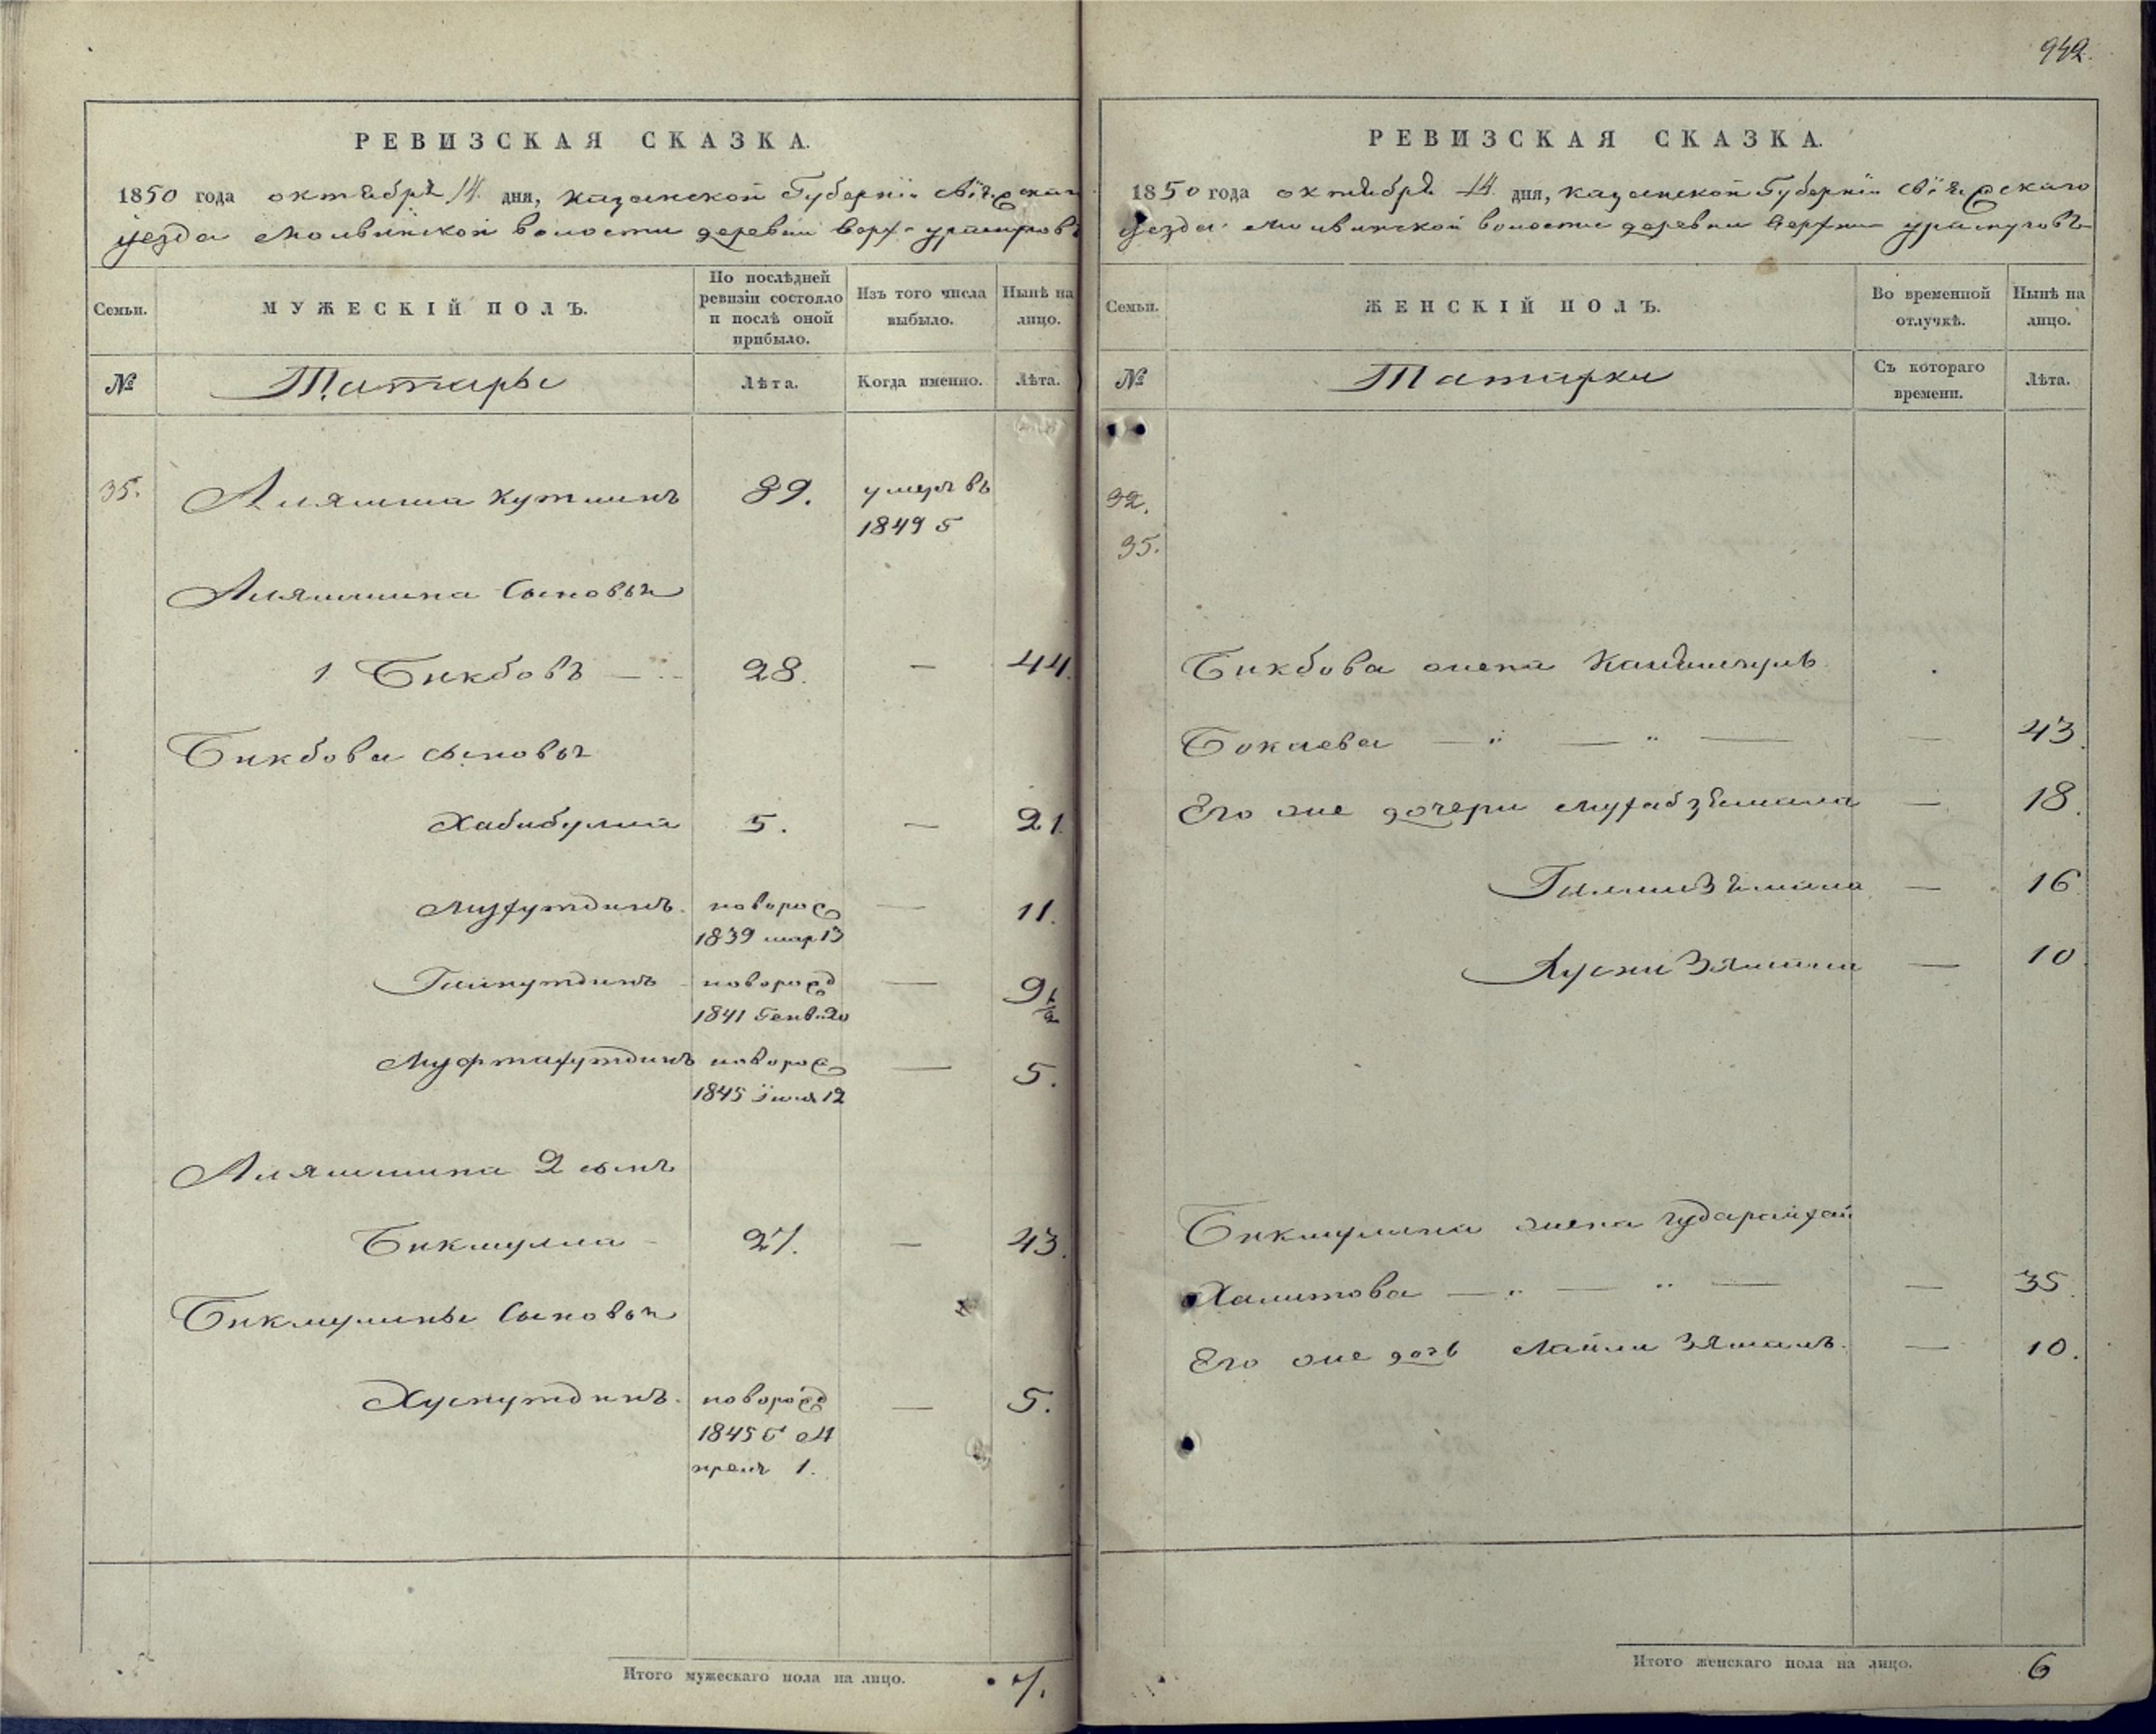 942.
РЕВИЗСКАЯ СКАЗКА.
1850 года октября 14 дня, Казанской Губернiи Свiяжскаго
уезда Молвинской волости деревни Верх-
Семьи.
МУЖЕСКІЙ ПОЛЪ.
По послѣдней ревизіи состояло и послѣ оной прибыло.
Изъ того числа выбыло.
Нынѣ на лицо.
№
Татары
Лѣта.
Когда именно.
Лѣта.
35. Аляшша Кутлинъ 89. умеръ въ
1849 г
Аляшшина Сыновья
1 Бикбовъ — 28. — 44.
Бикбова сыновья
Хабибулла 5. — 21.
Музутдинъ новорож — 11.
1839 мар 13
Гайнутдинъ новорожд — 9 1/2
1841 Генв. 20
Муфтахутдинъ новорож — 5.
1845 Iюля 12
Аляшшина 2 сынъ
Бикмулла 27. — 43.
Бикмуллины Сыновья
Хуснутдинъ новорожд — 5.
1845 г Ап
преля 1.
Итого мужескаго пола на лицо. 7.
РЕВИЗСКАЯ СКАЗКА.
1850 года октября 14 дня, Казанской Губернiи Свiяжскаго
уезда Молвинской волости деревни Верхни
Семьи.
ЖЕНСКІЙ ПОЛЪ.
Во временной отлучкѣ.
Нынѣ на лицо.
№
Татарки
Съ котораго времени.
Лѣта.
32.
35.
Бикбова жена
Бокаева — " — " — — 43.
Его же дочери — 18.
— 16
Хусни Зямила — 10
Бикмуллина жена
Халитова — " — " — — 35.
Его же дочь Лайли Зямалъ. — 10.
Итого женскаго пола на лицо. 6